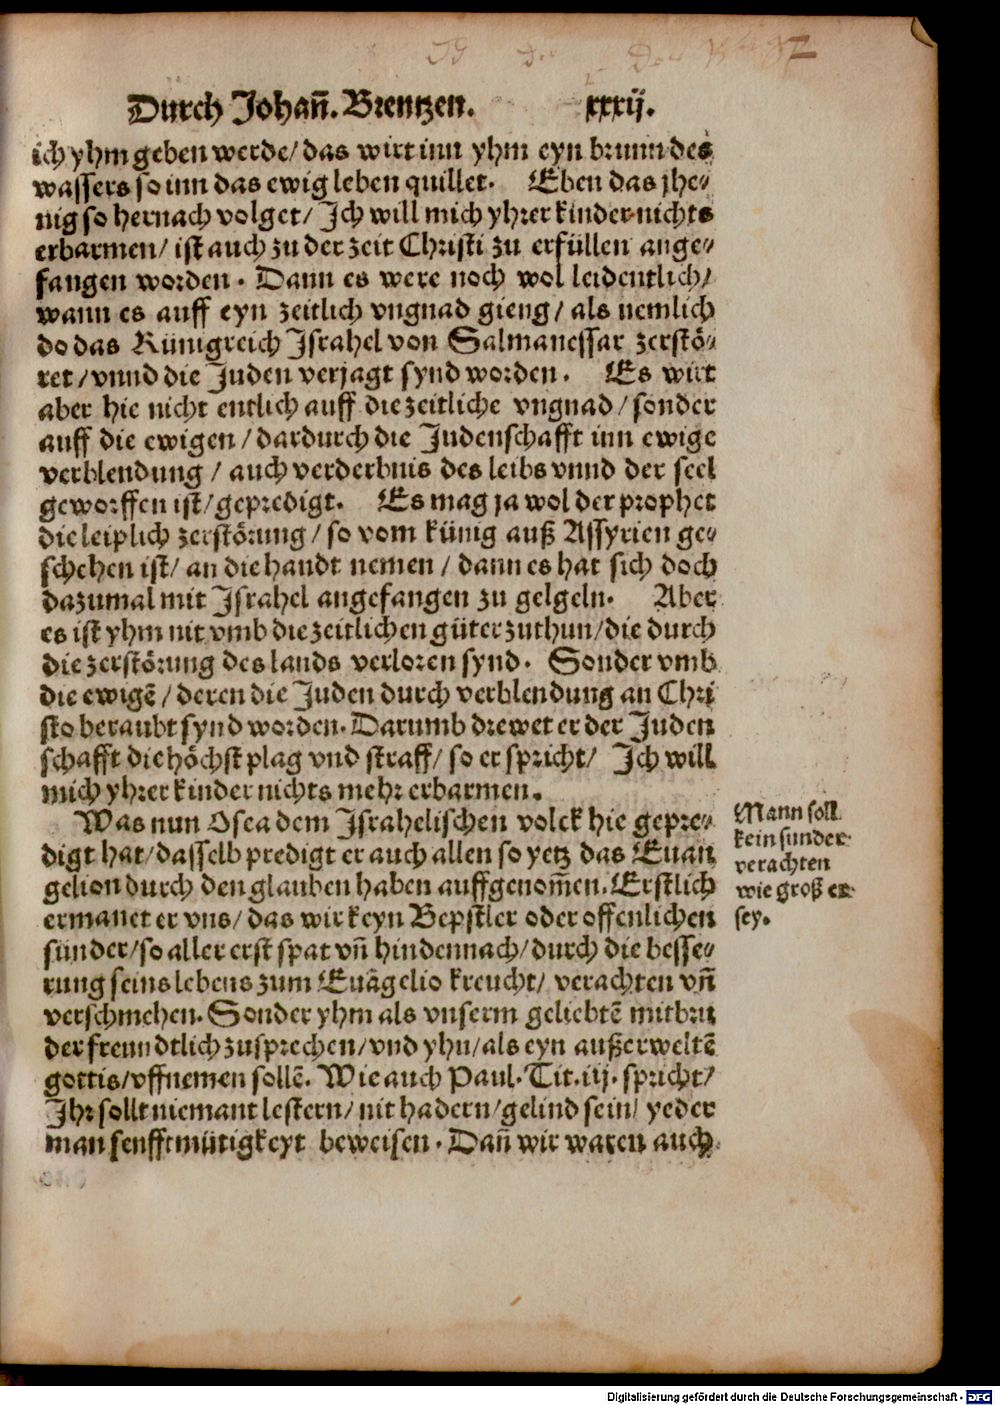 Durch Johañ. Brentzen. xxxij.
ich yhm geben werde/ das wirt inn yhm eyn brunn des
wassers so inn das ewig leben quillet. Eben das jhe⸗
nig so hernach volget/ Ich will mich yhrer kinder nichts
erbarmen/ ist auch zu der zeit Christi zu erfüllen ange⸗
fangen worden. Dann es were noch wol leidentlich/
wann es auff eyn zeitlich vngnad gieng/ als nemlich
do das Künigreich Israhel von Salmanessar zerstö⸗
ret/ vnnd die Juden verjagt synd worden. Es wirt
aber hie nicht entlich auff die zeitliche vngnad/ sonder
auff die ewigen/ dardurch die Judenschafft inn ewige
verblendung/ auch verderbnis des leibs vnnd der seel
geworffen ist/ gepredigt. Es mag ja wol der prophet
die leiplich zerstörung/ so vom künig auß Assyrien ge⸗
schehen ist/ an die handt nemen/ dann es hat sich doch
dazumal mit Israhel angefangen zu gelgeln. Aber
es ist yhm nit vmb die zeitlichen güter zuthun/ die durch
die zerstörung des lands verloren synd. Sonder vmb
die ewigē/ deren die Juden durch verblendung an Chri
sto beraubt synd worden. Darumb drewet er der Juden
schafft die höchst plag vnd straff/ so er spricht/ Ich will
mich yhrer kinder nichts mehr erbarmen.
Was nun Osea dem Israhelischen volck hie gepre⸗
digt hat/ dasselb predigt er auch allen so yetz das Euan
gelion durch den glauben haben auffgenom̄en. Erstlich
ermanet er vns/ das wir keyn Bepstler oder offenlichen
sünder/ so aller erst spat vñ hindennach/ durch die besse⸗
rung seins lebens zum Euāgelio kreucht/ verachten vñ
verschmehen. Sonder yhm als vnserm geliebtē mitbru
der freundtlich zusprechen/ vnd yhn/ als eyn außerweltē
gottis/ vffnemen sollē. Wie auch Paul. Tit. iij. spricht/
Ihr sollt niemant lestern/ nit hadern/ gelind sein/ yeder
man senfftmütigkeyt beweisen. Dañ wir waren auch
Mann soll
kein sunder
verachten
wie groß er
sey.
Digitalisierung gefördert durch die Deutsche Forschungsgemeinschaft - DFG